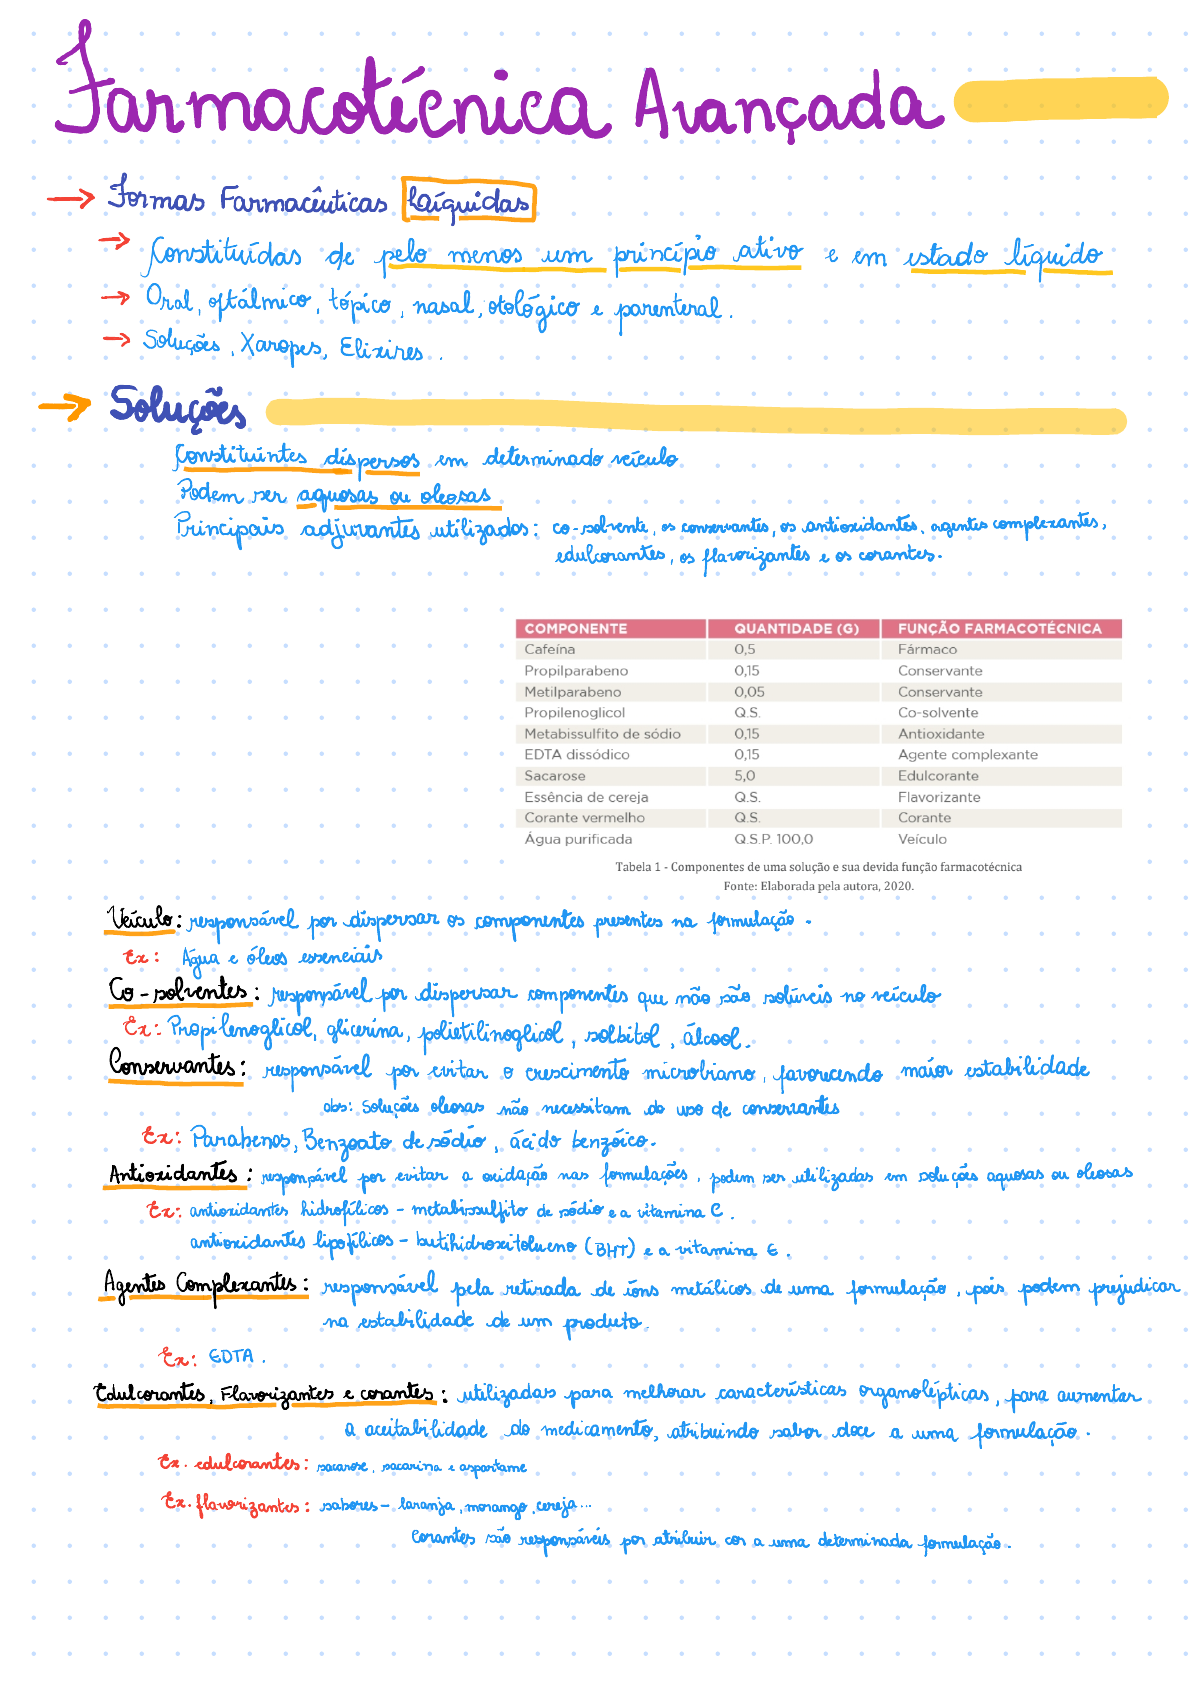 Farmacotécnica Avançada
→ Formas Farmacêuticas Laíquidas
→ Constituídas de pelo menos um princípio ativo e em estado líquido
→ Oral, oftálmico, tópico, nasal, otológico e parenteral.
→ Soluções, Xaropes, Elixires.
→ Soluções
Constituintes dispersos em determinado veículo
Podem ser aquosas ou oleosas
Principais adjuvantes utilizados: co-solvente, os conservantes, os antioxidantes, agentes complexantes,
edulcorantes, os flavorizantes e os corantes.
COMPONENTE QUANTIDADE (G) FUNÇÃO FARMACOTÉCNICA
Cafeína 0,5 Fármaco
Propilparabeno 0,15 Conservante
Metilparabeno 0,05 Conservante
Propilenoglicol Q.S. Co-solvente
Metabissulfito de sódio 0,15 Antioxidante
EDTA dissódico 0,15 Agente complexante
Sacarose 5,0 Edulcorante
Essência de cereja Q.S. Flavorizante
Corante vermelho Q.S. Corante
Água purificada Q.S.P. 100,0 Veículo
Tabela 1 - Componentes de uma solução e sua devida função farmacotécnica
Fonte: Elaborada pela autora, 2020.
Veículo: responsável por dispersar os componentes presentes na formulação.
Ex: Água e óleos essenciais
Co-solventes: responsável por dispersar componentes que não são solúveis no veículo
Ex: Propilenoglicol, glicerina, polietilinoglicol, solbitol, álcool.
Conservantes: responsável por evitar o crescimento microbiano, favorecendo maior estabilidade
obs: Soluções oleosas não necessitam do uso de conservantes
Ex: Parabenos, Benzoato de sódio, ácido benzóico.
Antioxidantes: responsável por evitar a oxidação nas formulações, podem ser utilizadas em soluções aquosas ou oleosas
Ex: antioxidantes hidrofílicos - metabissulfito de sódio e a vitamina C.
antioxidantes lipofílicos - butihidroxitolueno (BHT) e a vitamina E.
Agentes Complexantes: responsável pela retirada de íons metálicos de uma formulação, pois podem prejudicar
na estabilidade de um produto.
Ex: EDTA.
Edulcorantes, Flavorizantes e corantes: utilizadas para melhorar características organolépticas, para aumentar
a aceitabilidade do medicamento, atribuindo sabor doce a uma formulação.
Ex. edulcorantes: sacarose, sacarina e aspartame
Ex. flavorizantes: sabores - laranja, morango, cereja...
Corantes são responsáveis por atribuir cor a uma determinada formulação.